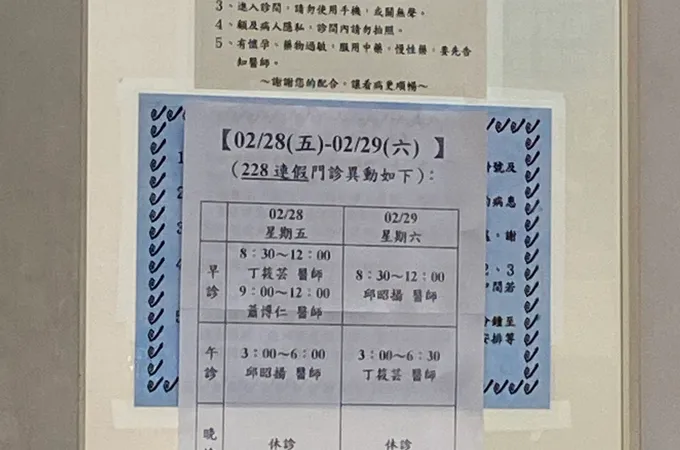 3、進入診間，請勿使用手機，或關無聲。
4、顧及病人隱私，診間內請勿拍照。
5、有懷孕、藥物過敏，服用中藥，慢性藥，要先告
知醫師。
～謝謝您的配合，讓看病更順暢～
【02/28(五)-02/29(六) 】
(228 連假門診異動如下)：
02/28 02/29
星期五 星期六
早診
8：30～12：00
丁筱芸 醫師
9：00～12：00
蕭博仁 醫師
8：30～12：00
邱昭揚 醫師
午診
3：00～6：00
邱昭揚 醫師
3：00～6：30
丁筱芸 醫師
晚
休診 休診
號及
的病息
謝
2、3
中間若
分鐘至
安排等